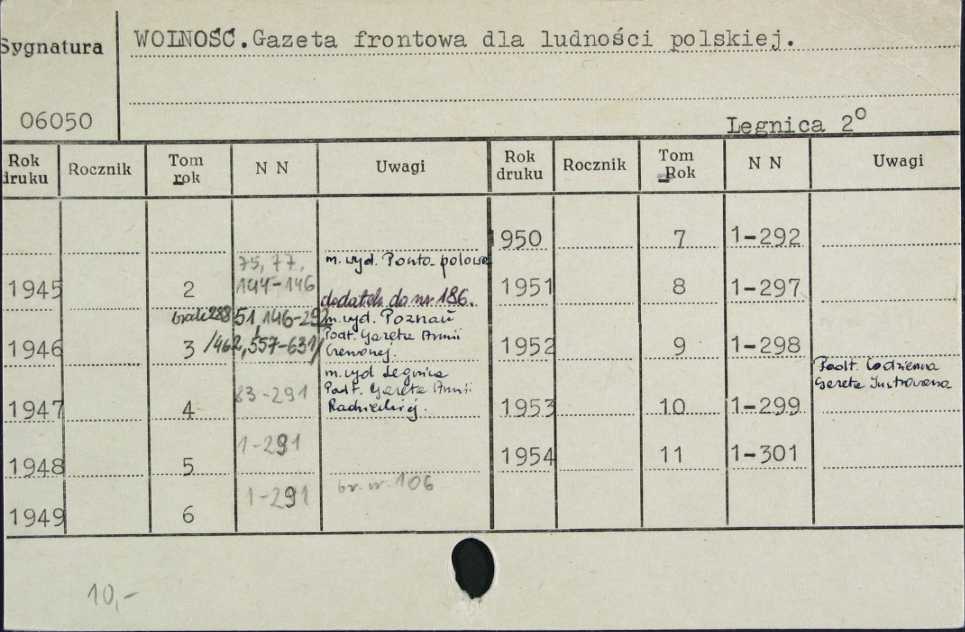 Sygnatura
WOLNOŚĆ.Gazeta frontowa dla ludności polskiej.
06050
Legnica 2°
Rok druku Rocznik Tom rok N N Uwagi Rok druku Rocznik Tom Rok N N Uwagi
1950 7 1-292
1945 2 75, 77, 144-146 m. wyd. Ponto-polowa
dodatek do nr 186.
1951 8 1-297
1946 3 brak 288 51, 146-292 /462, 557-631/ m. wyd. Poznań
Podt. Gazeta Armii
Czerwonej.
1952 9 1-298
1947 4 83-291 m. wyd Legnica
Podt. Gazeta Armii
Radzieckiej.
1953 10 1-299 Podt. Codzienna
Gazeta Ilustrowana
1948 5 1-291
1954 11 1-301
1949 6 1-291 br. nr. 106
10,-